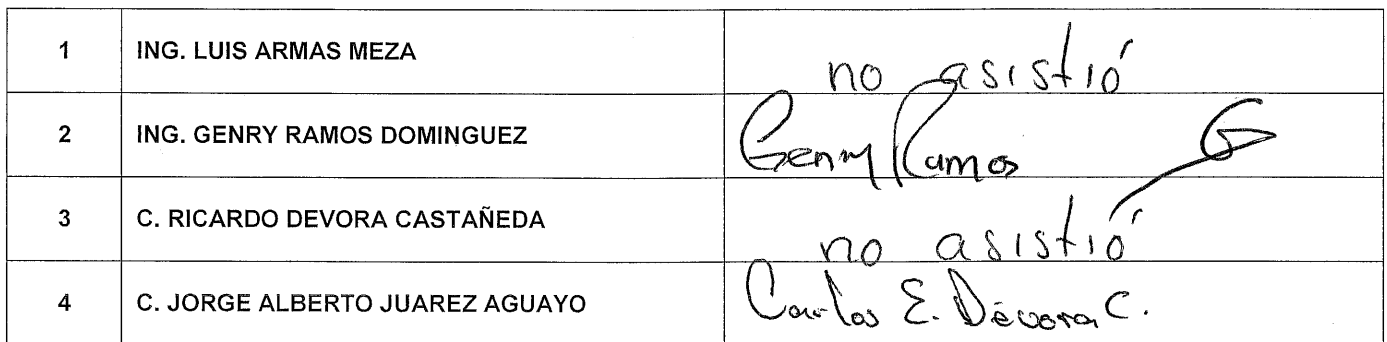 1 ING. LUIS ARMAS MEZA no asistió
2 ING. GENRY RAMOS DOMINGUEZ Genry Ramos G
3 C. RICARDO DEVORA CASTAÑEDA no asistió
4 C. JORGE ALBERTO JUAREZ AGUAYO Carlos E. Dévora C.